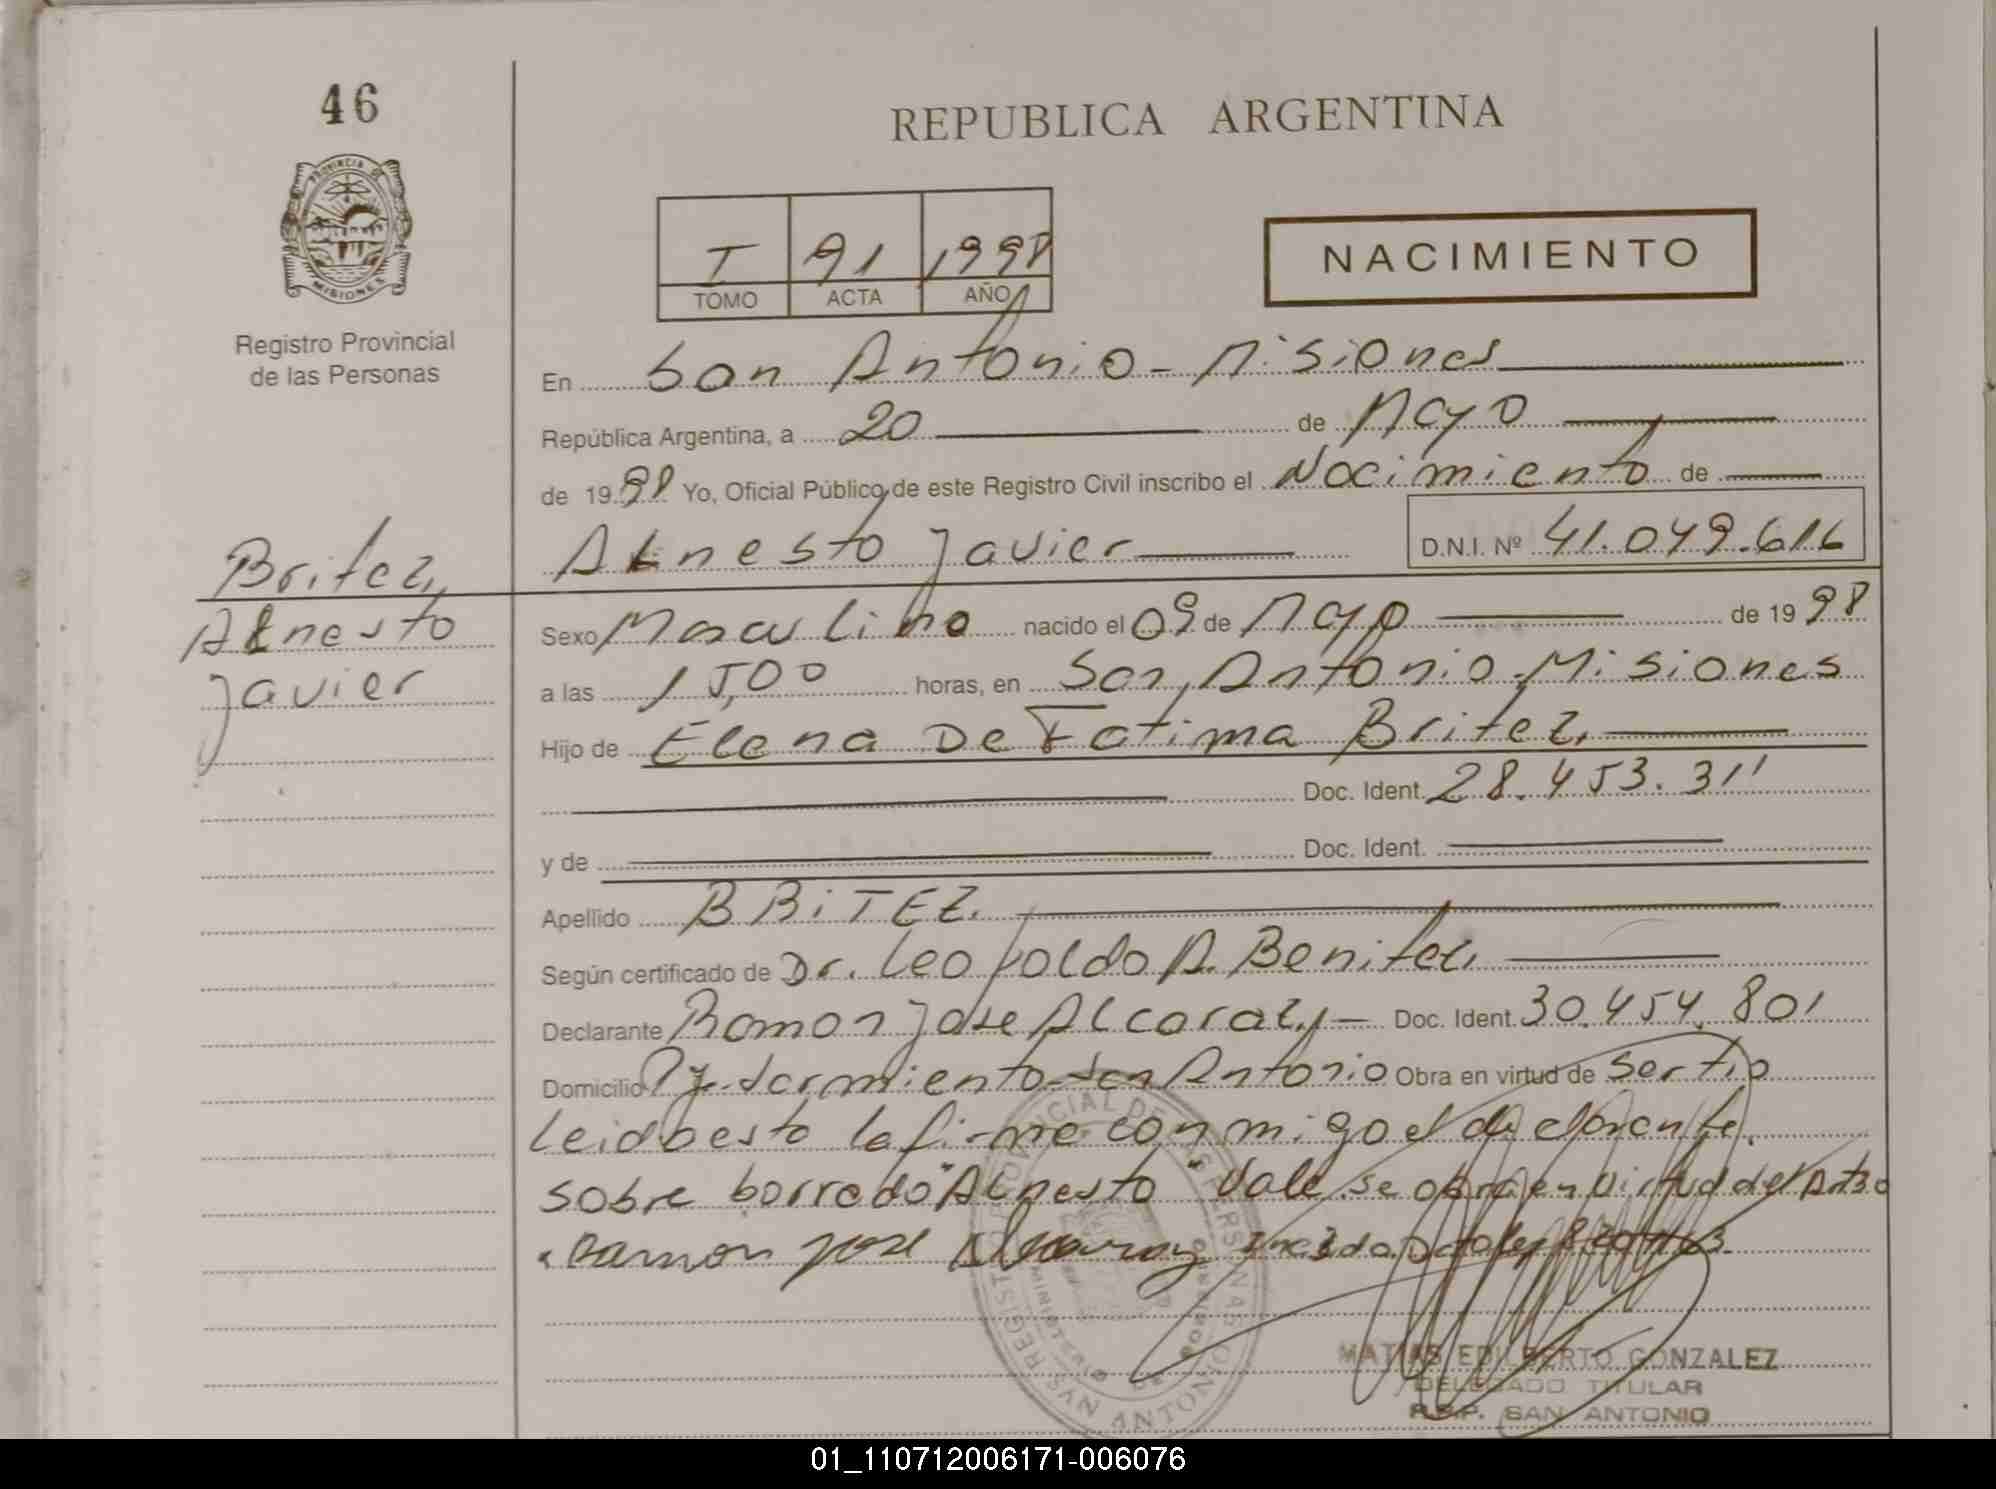 46
REPUBLICA ARGENTINA
PROVINCIA DE
MISIONES
Registro Provincial
de las Personas
I 91 1998
TOMO ACTA AÑO
NACIMIENTO
En San Antonio - Misiones
República Argentina, a 20 de Mayo
de 1998 Yo, Oficial Público de este Registro Civil inscribo el Nacimiento de
Alnesto Javier D.N.I. Nº 41.049.616
Britez,
Alnesto
Javier
Sexo Masculino nacido el 09 de Mayo de 1998
a las 15,00 horas, en San Antonio - Misiones
Hijo de Elena De Fatima Britez.
Doc. Ident. 28.453.311
y de Doc. Ident.
Apellido BRiTEZ.
Según certificado de Dr. Leopoldo A. Benitez,
Declarante Ramon Jose Alcaraz,- Doc. Ident. 30.454.801
Domicilio Pje. Sarmiento - San Antonio Obra en virtud de Sertio
Leida esta la firma conmigo el declarante.
sobre borrado "Alnesto" Vale. se obra en virtud del
Ramon Jose Alcaraz
REGISTRO PROVINCIAL DE LAS PERSONAS
MINISTERIO DE GOBIERNO
SAN ANTONIO
MATIAS EDILBERTO GONZALEZ
DELEGADO TITULAR
R.P.P. SAN ANTONIO
01_110712006171-006076